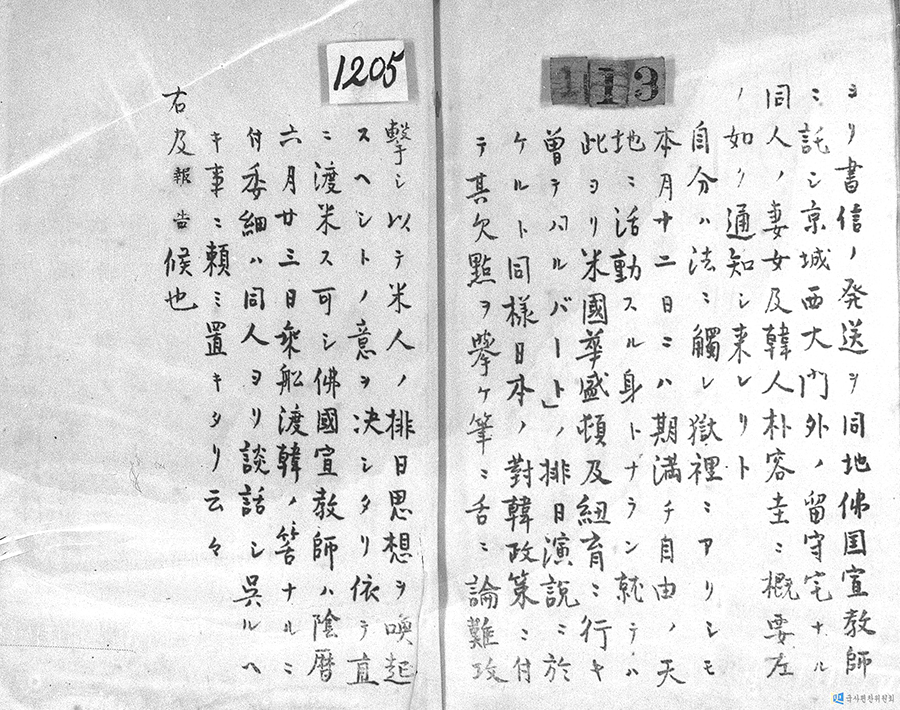 113
ヨリ書信ノ発送ヲ同地佛国宣教師
ニ託シ京城西大門外ノ留守宅ナル
同人ノ妻女及韓人朴容圭ニ概要左
ノ如ク通知シ来レリト
自分ハ法ニ觸レ獄裡ニアリシモ
本月十二日ニハ期満チ自由ノ天
地ニ活動スルノ身トナラン就テハ
此ヨリ米國華盛頓及紐育ニ行キ
曾テ「ハルバート」ノ排日演説ニ於
ケルト同様日本ノ對韓政策ニ付
テ其欠點ヲ擧ケ筆ニ舌ニ論難攻
1205
擊シ以テ米人ノ排日思想ヲ喚起
スヘシトノ意ヲ决シタリ依テ直
ニ渡米ス可シ佛國宣教師ハ陰暦
六月廿三日乗船渡韓ノ筈ナルニ
付委細ハ同人ヨリ談話シ呉ルヘ
キ事ニ頼ミ置キタリ云々
右及報告候也
국사편찬위원회